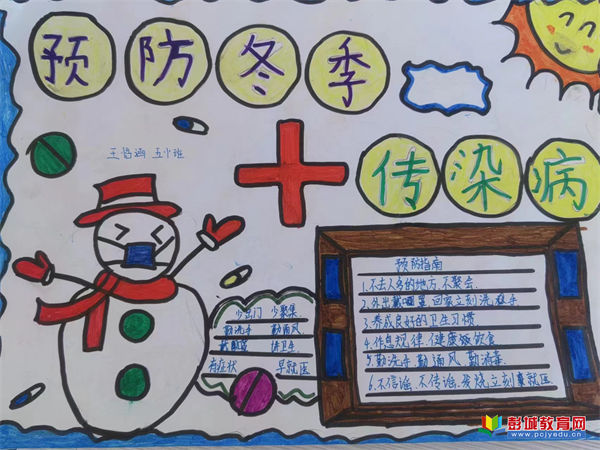 预防冬季
传染病
王 涵 五1班
少出门 少聚集
勤洗手 勤通风
戴口罩 讲卫生
有症状 早就医
预防指南
1.不去人多的地方 不聚会
2.外出戴口罩 回家立刻洗手
3.养成良好的卫生习惯
4.作息规律 健康饮食
5.勤洗手 勤通风 勤消毒
6.不信谣,不传谣,发烧立刻就医
彭城教育网
www.pcjyedu.cn